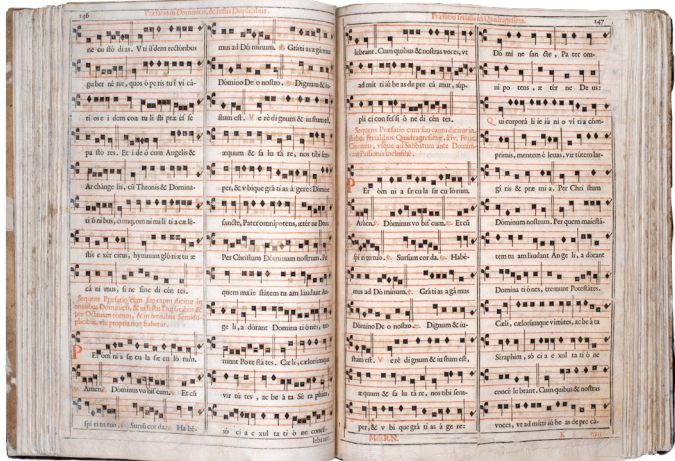 146
Præfatio in Dominicis, & festis Duplicibus.
ne cu stò di as. V ti ij dem rectoribus
gu ber né tur, quos ó pe ris tu i vi cá-
ti os e i dem con tu li sti præ és se
pa stó res. Et i de ò cum Angelis &
Archange lis, cũ Thronis & Domina-
ti ó ni bus, cumq; om ni mi li ti a cæ lé-
stis e xér citus, hymnum gló riæ tu æ
cá ni mus, si ne fine di cén tes.
Sequens Præfatio cum suo cantu dicitur in
omnibus Dominicis, & in festis Duplicibus &
per Octauam eorum, & in omnibus Semidu-
plicibus, vbi propria non habetur.
PEr om ni a se cu la se cu ló rum.
Amen. Dominus vo bis cum. Et cũ
spi ri tu tuo. Sursũ cor da. Ha bé-
mus ad Dó minum. Grá ti as a gá mus
Dómino De o nostro. Dignum & iu-
stum est. V e rè di gnum & iu stum est,
æquum & sa lu tá re, nos tibi sem-
per, & v bique grá ti as á gere: Dómine
sancte, Pater omnípotens, ætér ne Deus
Per Christum Dóminum nostrum. Per
quem maie státem tu am láudant An-
ge li, a dórant Domina ti ónes, tre-
munt Pote stá tes. Cæ li, cælorúmque
vir tú tes, ac be á ta Sé ra phim,
só ci a e xul ta ti ó ne concé-
lebrant.
Præfatio ferialis in Quadragesima.
147
lebrant. Cum quibus & nostras voces, vt
ad mit ti iú be as de pre cá mur, súp-
pli ci con fes si ó ne di cén tes.
Sequens Præfatio cum suo cantu dicitur in
PEr óm ni a se cu la se cu lo rum.
Amen. Dóminus vo bis cum. Et cũ
spi ri tu tuo. Sursum cor da. Habé-
mus ad Dó minum. Grá ti as a gá mus
Dómino De o nostro. Dignum & iu-
stum est. V e rè dí gnum & iu stum est,
æquum & sa lu tá re, nos tibi sem-
per, & v bi que grá ti as á ge re:
Missl. R.N.
Dó mi ne san cte, Pa ter om-
ni po tens, æ tér ne De us:
Qui corporá li ie iú ni o ví ti a cóm-
primis, mentem é leuas, virtútem lar-
gí ris & præ mi a. Per Chri stum
Dóminum nostrum. Per quem maiestá-
tem tu am laudant Ange li, a dórant
Domina ti ónes, tremunt Potestátes.
Cæli, cælorúmque virtútes, ac be á ta
Séraphim, só ci a e xul ta ti ó ne
concé le brant. Cum quibus & nostras
voces, vt ad mitti iú be as de pre cá-
K